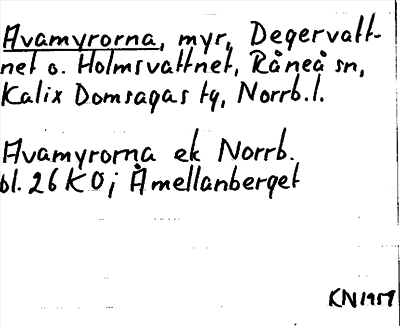 Avamyrorna, myr, Degervatt-
net o. Holmsvattnet, Råneå sn,
Kalix Domsagas tg, Norrb.l.
Avamyrorna ek Norrb.
bl. 26 K O; Åmellanberget
KN 1957